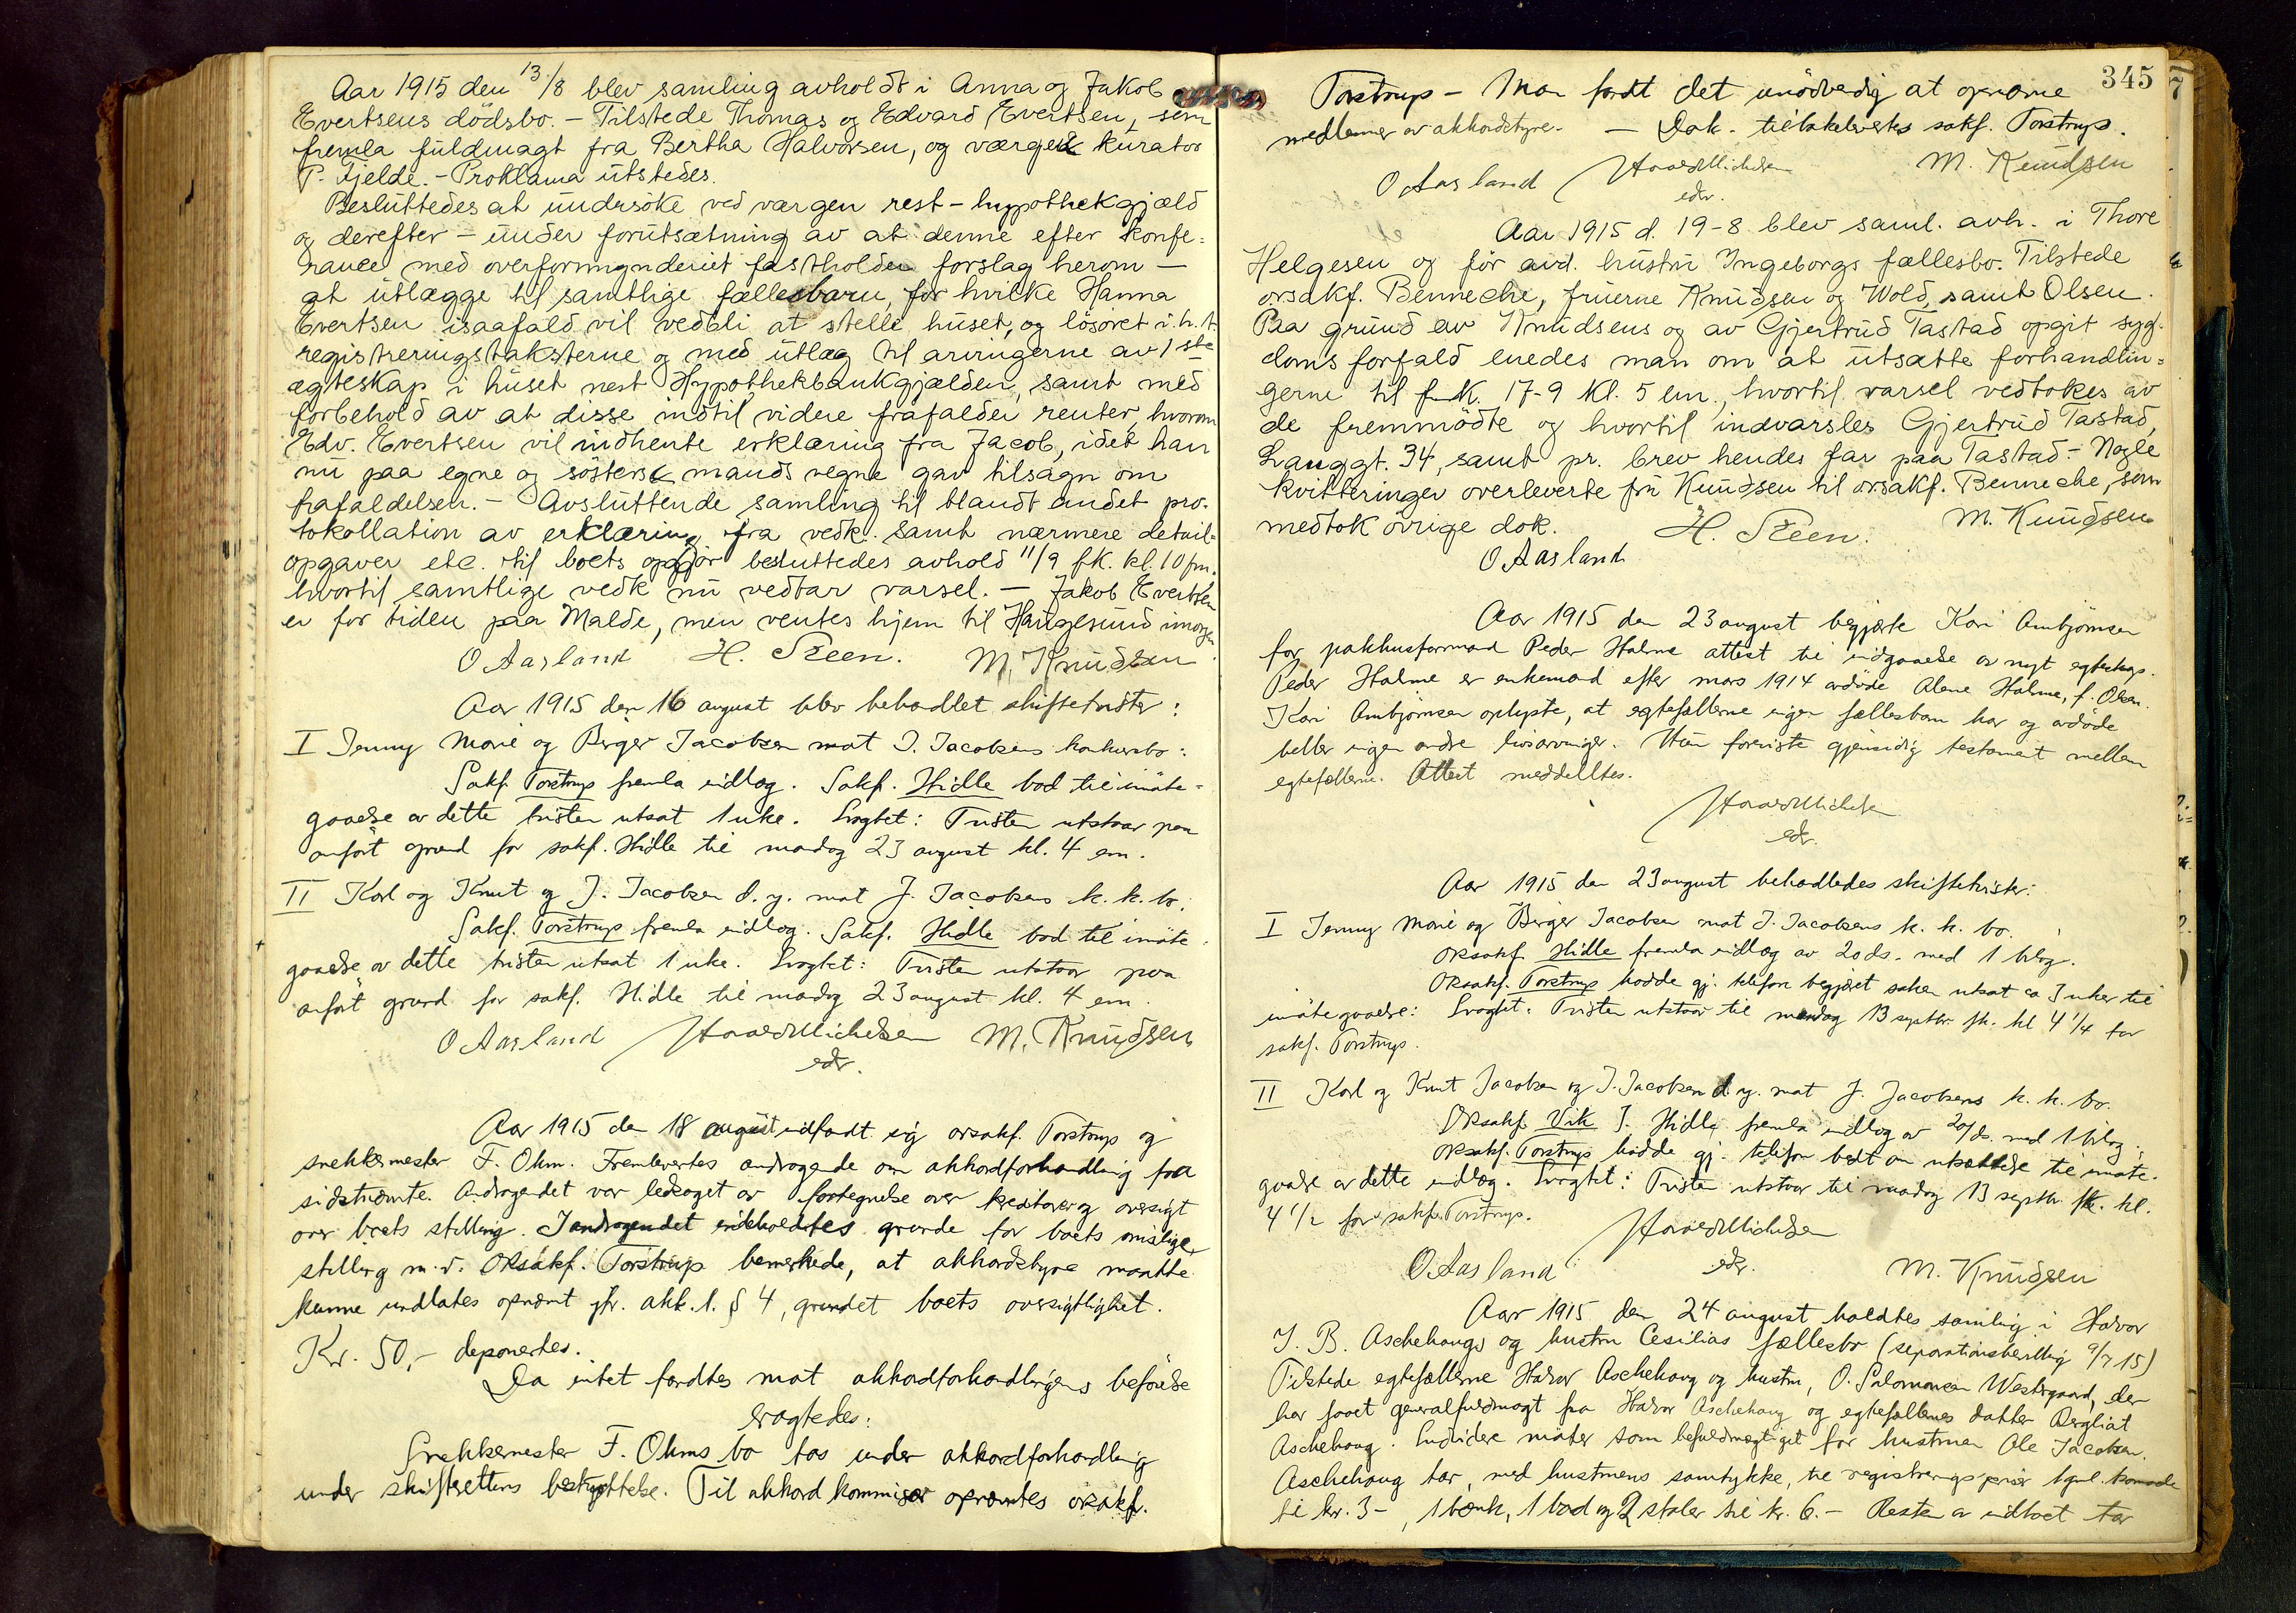 Aar 1915 den 13/8 blev samling avholdt i Anna og Jakob
Evertsens dödsbo. - Tilstede Thomas og Edvard Evertsen, som
fremla fuldmagt fra Bertha Halvorsen, og værge kurator
P. Fjelde. - Proklama utstedes.
Besluttedes at undersöke ved værgen rest-hypothekgjæld
og derefter - under forutsætning av at denne efter konfe-
rance med overformynderiet fastholder forslag herom -
at utlægge til samtlige fællesbarn, for hvilke Hanna
Evertsen isaafald vil vedbli at stelle huset, og lösöret i.h.t.
registreringstaksterne og med utlæg til arvingerne av 1ste
ægteskap i huset nest Hypothekbankgjælden, samt med
forbehold av at disse indtil videre frafalder renter, hvorom
Edv. Evertsen vil indhente erklæring fra Jacob, idet han
nu paa egne og sösters mands vegne gav tilsagn om
frafaldelsen. - Avsluttende samling til blandt andet pro-
tokollation av erklæring fra vedk. samt nærmere detail-
opgaver etc. til boets opgjör besluttedes avhold 11/9 fk. kl. 10 fm.
hvortil samtlige vedk nu vedtar varsel. - Jakob Evertsen
er for tiden paa Malde, men ventes hjem til Haugesund imorgen
O Aasland H. Steen. M. Knudsen
Aar 1915 den 16 august blev behandlet skiftetvister:
I Jenny Marie og Birger Jacobsen mot J. Jacobsens konkursbo:
Sakf. Torstrup fremla indlæg. Sakf. Hidle bad til imöte-
gaaelse av dette tvisten utsat 1 uke. Eragtet: Tvisten utstaar paa
anfört grund for sakf. Hidle til mandag 23 august kl. 4 em.
II Karl og Knut og J. Jacobsen d.y. mot J. Jacobsens k.k.bo:
Sakf. Torstrup fremla indlæg. Sakf. Hidle bad til imöte-
gaaelse av dette tvisten utsat 1 uke. Eragtet: Tvisten utstaar paa
anfört grund for sakf. Hidle til mandag 23 august kl. 4 em.
O Aasland Haardt Michelsen M. Knudsen
edv.
Aar 1915 den 18 august indfandt sig orsakf. Torstrup og
snekkermester F. Ohm. Fremlevertes andragende om akkordforhandling fra
sidstnævnte. Andragendet var ledsaget av fortegnelse over kreditorer og oversigt
over boets stilling. I andragendet indeholdtes grunde for boets mislige
stilling m.v. Orsakf. Torstrup bemerkede, at akkordstyre maatte
kunne undlates opnævnt jfr. akk.l. § 4, grundet boets oversigtlighet.
Kr. 50,- deponertes.
Da intet fandtes mot akkordforhandlingens beförelse
eragtedes:
Snekkermester F. Ohms bo tas under akkordforhandling
under skifterettens beskyttelse. Til akkordkommisær opnævntes orsakf.
345
Torstrup - Man fandt det unödvendig at opnævne
medlemer av akkordstyre. - Dok. tilbakelevertes sakf. Torstrup.
O Aasland Haardt Michelsen M. Knudsen
edv.
Aar 1915 d. 19-8 blev saml. avh. i Thore
Helgesen og før avd. hustru Ingeborgs fællesbo. Tilstede
orsakf. Benneche, fruerne Knudsen og Wold, samt Olsen.
Paa grund av Knudsens og av Gjertrud Tastad opgit syg-
doms forfald enedes man om at utsætte forhandlin-
gerne til f.k. 17-9 kl. 5 em., hvortil varsel vedtokes av
de fremmödte og hvortil indvarsles Gjertrud Tastad,
Langgt. 34, samt pr. brev hendes far paa Tastad. - Nogle
kvitteringer overleverte fru Knudsen til orsakf. Benneche, som
medtok övrige dok. H. Steen. M. Knudsen
O Aasland
Aar 1915 den 23 august begjærte Kari Ambjörnsen
for pakhusformand Peder Halme attest til indgaaelse av nyt egteskap.
Peder Halme er enkemand efter mars 1914 avdöde Alene Halme, f. Olsen.
Kari Ambjörnsen oplyste, at egtefællerne ingen fællesbarn har og avdöde
heller ingen andre livsarvinger. Hun foreviste gjensidig testament mellem
egtefællerne. Attest meddelltes.
Haardt Michelsen
edv.
Aar 1915 den 23 august behandledes skiftetvister:
I Jenny Marie og Birger Jacobsen mot J. Jacobsens k.k.bo.
Orsakf. Hidle fremla indlæg av 20 ds. med 1 bilag.
Orsakf. Torstrup hadde gj. telefon begjæret saken utsat ca 3 uker til
imötegaaelse: Eragtet: Tvisten utstaar til mandag 13 septbr. fk. kl 4 1/4 for
sakf. Torstrup.
II Karl og Knut Jacobsen og J. Jacobsen d.y. mot J. Jacobsens k.k.bo.
Orsakf. Vik f. Hidle fremla indlæg av 20/ds. med 1 bilag.
Orsakf. Torstrup hadde gj. telefon bedt om utsættelse til imöte-
gaaelse av dette indlæg. Eragtet: Tvisten utstaar til mandag 13 septbr. fk. kl.
4 1/2 for sakf. Torstrup.
Haardt Michelsen
O. Aasland edv. M. Knudsen
Aar 1915 den 24 august holdtes samling i Halvor
J. B. Aschehougs og hustru Cesilias fællesbo (separationsbevilling 9/7 15)
Tilstede egtefællerne Halvor Aschehoug og hustru, O. Salomonsen Westergaard, der
har faaet generalfuldmagt fra Halvor Aschehoug og egtefællenes datter Bergliot
Aschehoug. Endvidere möter som befuldmægtiget for hustruen Ole Jacobsen.
Aschehoug tar, med hustruens samtykke, til registreringspriser 1 gml. komode
til kr. 3-, 1 bænk, 1 bord og 2 stoler til kr. 6.- Resten av indboet tar